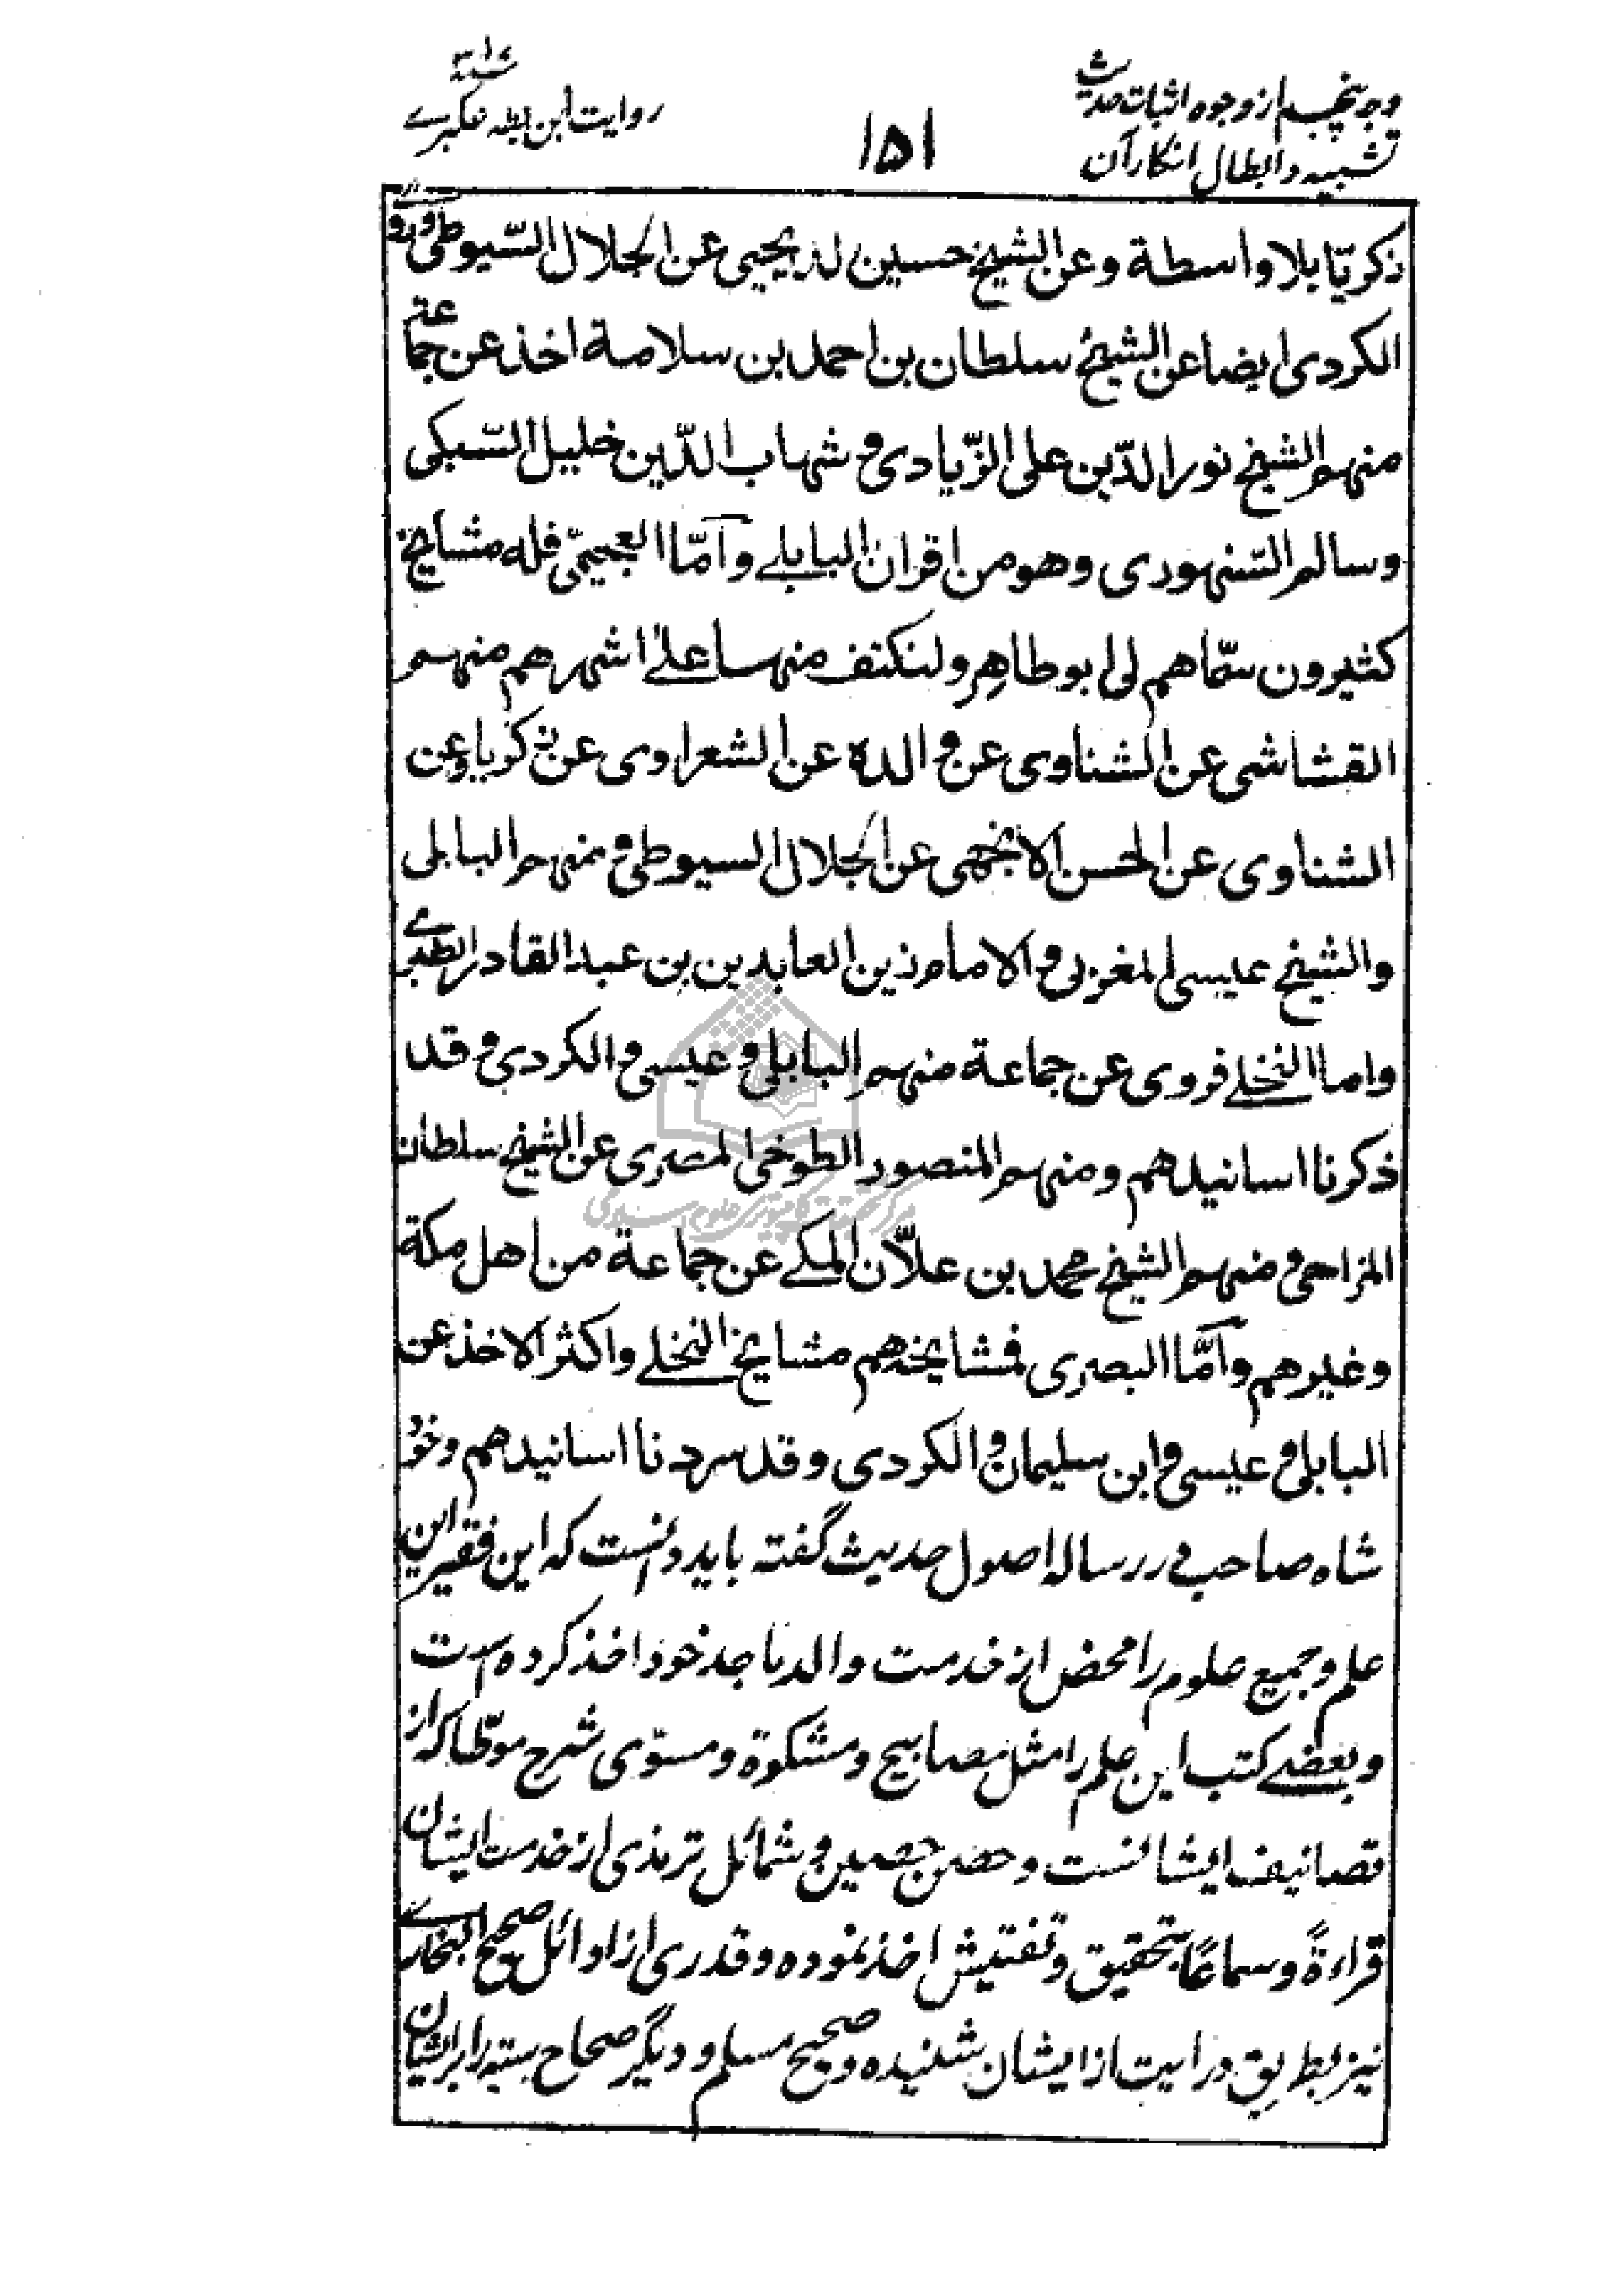 وجه پنجم از وجوه اثبات حدیث
تشبیه و ابطال انکار آن
١٥١
روایت ابن بطه عکبرے
ذكريّا بلا واسطة وعن الشيخ حسين يحيى عن الجلال السّيوطى وروى
الكردى ايضا عن الشيخ سلطان بن احمد بن سلامة اخذ عن جماعة
منهم الشيخ نور الدّين على الزّيادى و شهاب الدّين خليل السّبكى
وسالم السّنهورى وهو من اقران البابلے وآمّا العجيمىّ فله مشايخ
كثيرون سمّاهم لى ابو طاهر ولنكتف منها علےٰ اشهرهم منهم
القشاشى عن الشناوى عن والده عن الشعراوى عن زكريا وعن
الشناوى عن الحسن عن الجلال السيوطى و منهم البابلى
والشيخ عيسى المغربى و الامام زين العابدين بن عبد القادر الطبرے
واما النخلے فروى عن جماعة منهم البابلى و عيسى و الكردي و قد
ذكرنا اسانيدهم ومنهم المنصور الطوخى المصرى عن الشيخ سلطان
المزاحى و منهم الشيخ محمد بن علاّن المكے عن جماعة من اهل مكة
وغيرهم وآمّا البصرى فمشايخه هم مشايخ النخلے واكثر الاخذ عن
البابلى و عيسى و ابن سليمان و الكردى وقد سردنا اسانيدهم وخود
شاه صاحب در رساله اصول حدیث گفته باید دانست که این فقیر این
علم و جمیع علوم را محض از خدمت والد ماجد خود اخذ کرده است
و بعضے کتب این علم را مثل مصابیح و مشکوة و مسوّی شرح موطّا که از
تصانیف ایشانست و حصن حصین و شمائل ترمذی از خدمت ایشان
قراءةً و سماعًا بتحقیق و تفتیش اخذ نموده و قدری از اوائل صحیح البخارے
نیز بطریق درایت از ایشان شنیده و صحیح مسلم و دیگر صحاح سته را بر ایشان